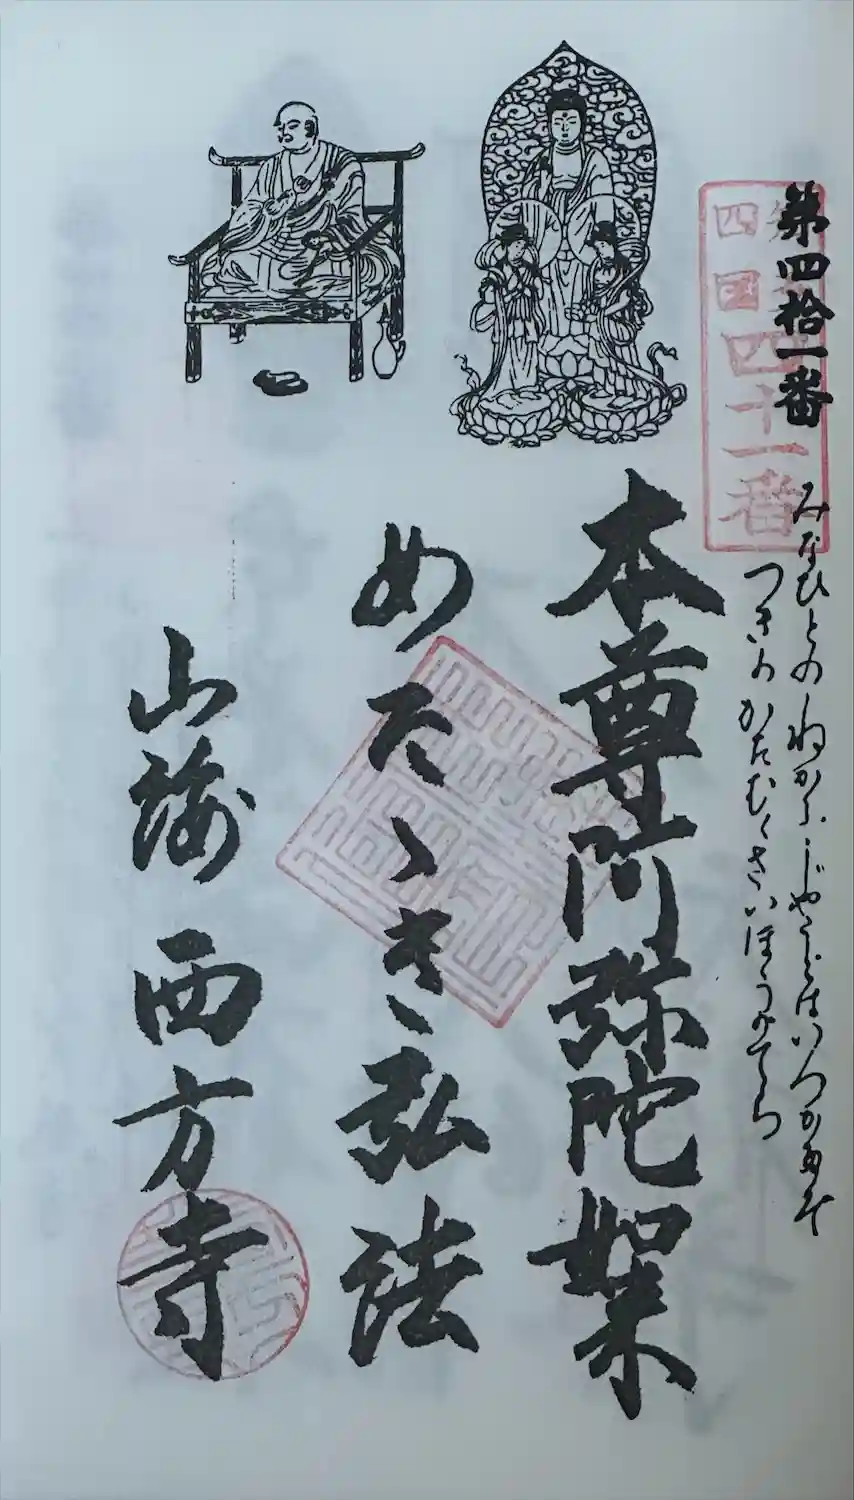 第四拾一番
四国
四十一番
みなひとの ねかふじやうどはいつかたぞ
つきのかたむくさいほうのてら
本尊阿弥陀如来
めたゝき弘法
山海 西方寺